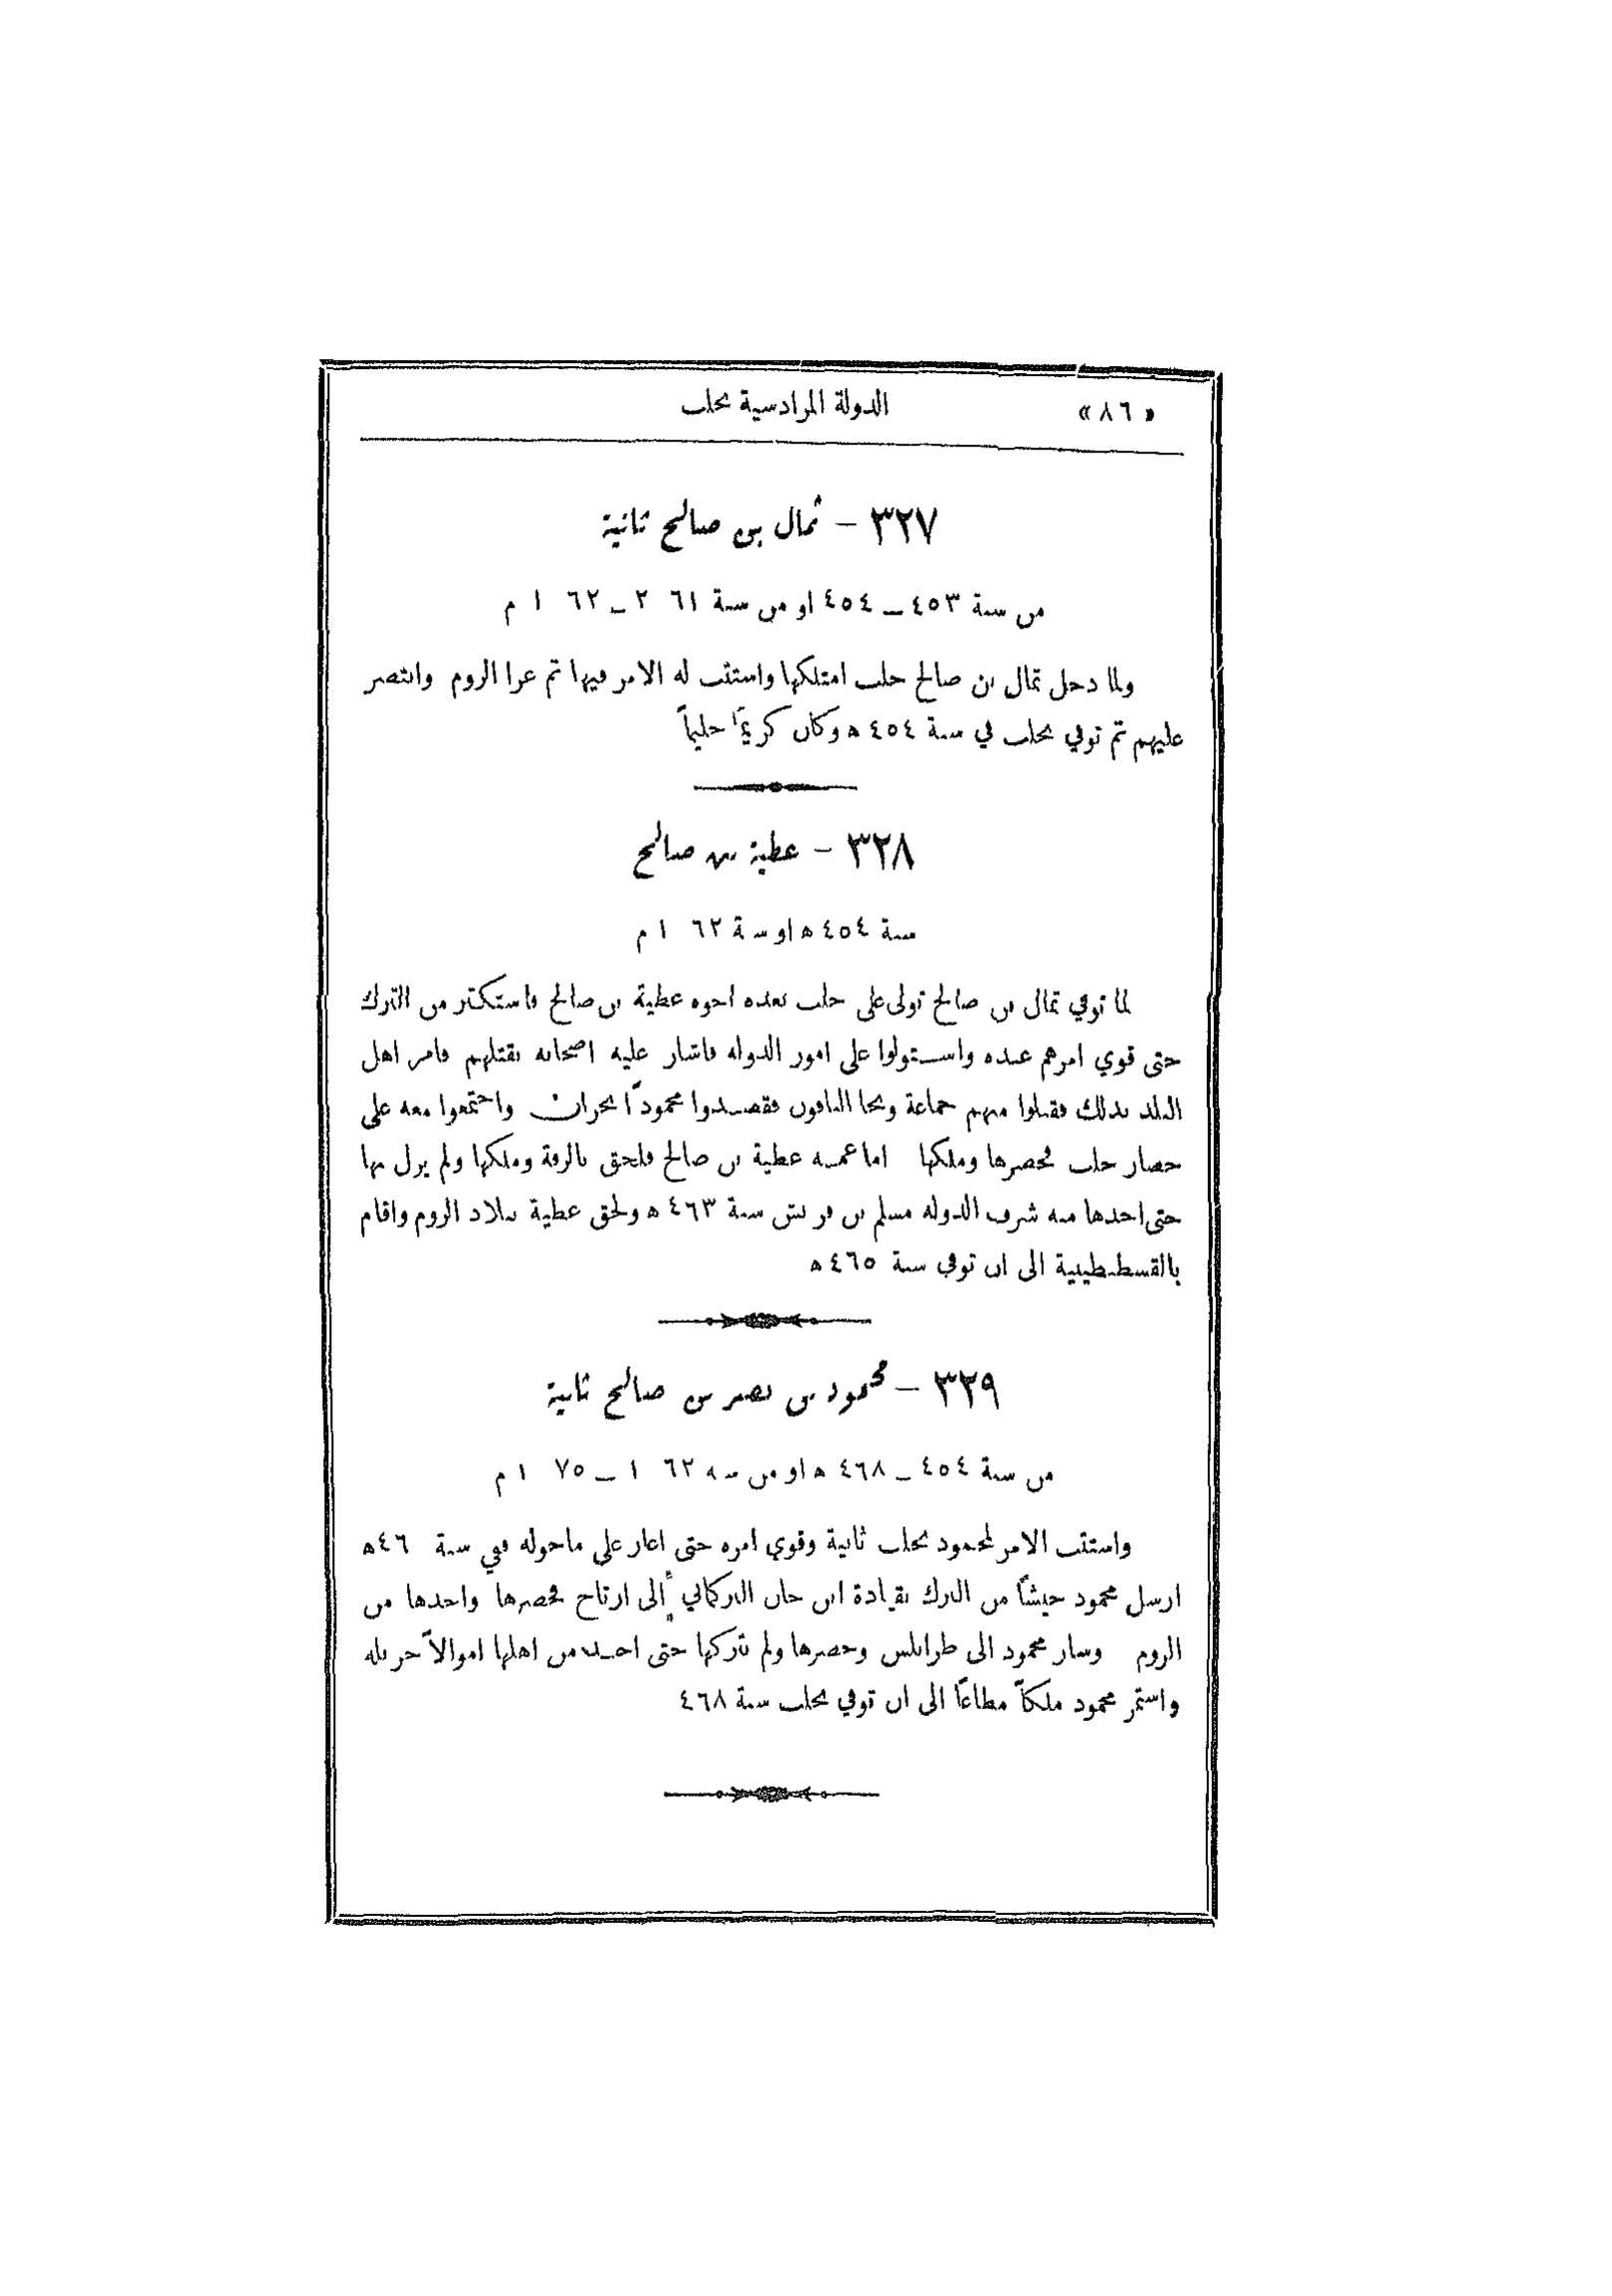 «٨٦» الدولة المرادسية بحلب
٣٢٧ – ثمال بن صالح ثانية
من سنة ٤٥٣ – ٤٥٤ او من سنة ٦١ ٢ – ٦٢ ١ م
ولما دخل ثمال بن صالح حلب امتلكها واستتب له الامر فيها ثم غزا الروم وانتصر
عليهم ثم توفي بحلب في سنة ٤٥٤ ه وكان كريمًا حليماً
٣٢٨ – عطية بن صالح
سنة ٤٥٤ ه او سنة ٦٢ ١ م
لما توفي ثمال بن صالح تولى على حلب بعده اخوه عطية بن صالح فاستكثر من الترك
حتى قوي امرهم عنده واستولوا على امور الدولة فاشار عليه اصحابه بقتلهم فامر اهل
البلد بذلك فقتلوا منهم جماعة ونجا الباقون فقصدوا محمودًا بحران واجتمعوا معه على
حصار حلب فحصرها وملكها اما عمه عطية بن صالح فلحق بالرقة وملكها ولم يزل بها
حتى اخذها منه شرف الدوله مسلم بن قريش سنة ٤٦٣ ه ولحق عطية ببلاد الروم واقام
بالقسطنطينية الى ان توفي سنة ٤٦٥ ه
٣٣٩ – محمود بن نصر بن صالح ثانية
من سنة ٤٥٤ – ٤٦٨ ه او من سنه ٦٢ ١ – ٧٥ ١ م
واستتب الامر لمحمود بحلب ثانية وقوي امره حتى اغار على ماحوله ففي سنة ٤٦ ه
ارسل محمود جيشًا من الترك بقيادة ابن خان التركماني الى ارتاح فحصرها واخذها من
الروم وسار محمود الى طرابلس وحصرها ولم يتركها حتى اخذ من اهلها اموالاً جزيله
واستمر محمود ملكاً مطاعًا الى ان توفي بحلب سنة ٤٦٨